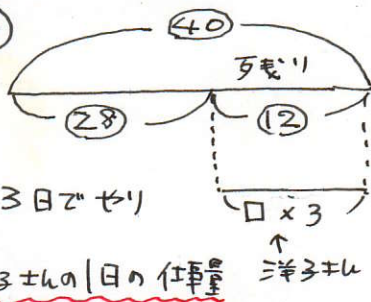 ㊵
残り
㉘ ⑫
3日でやり
□×3
↑
洋子さん
子さんの1日の仕事量